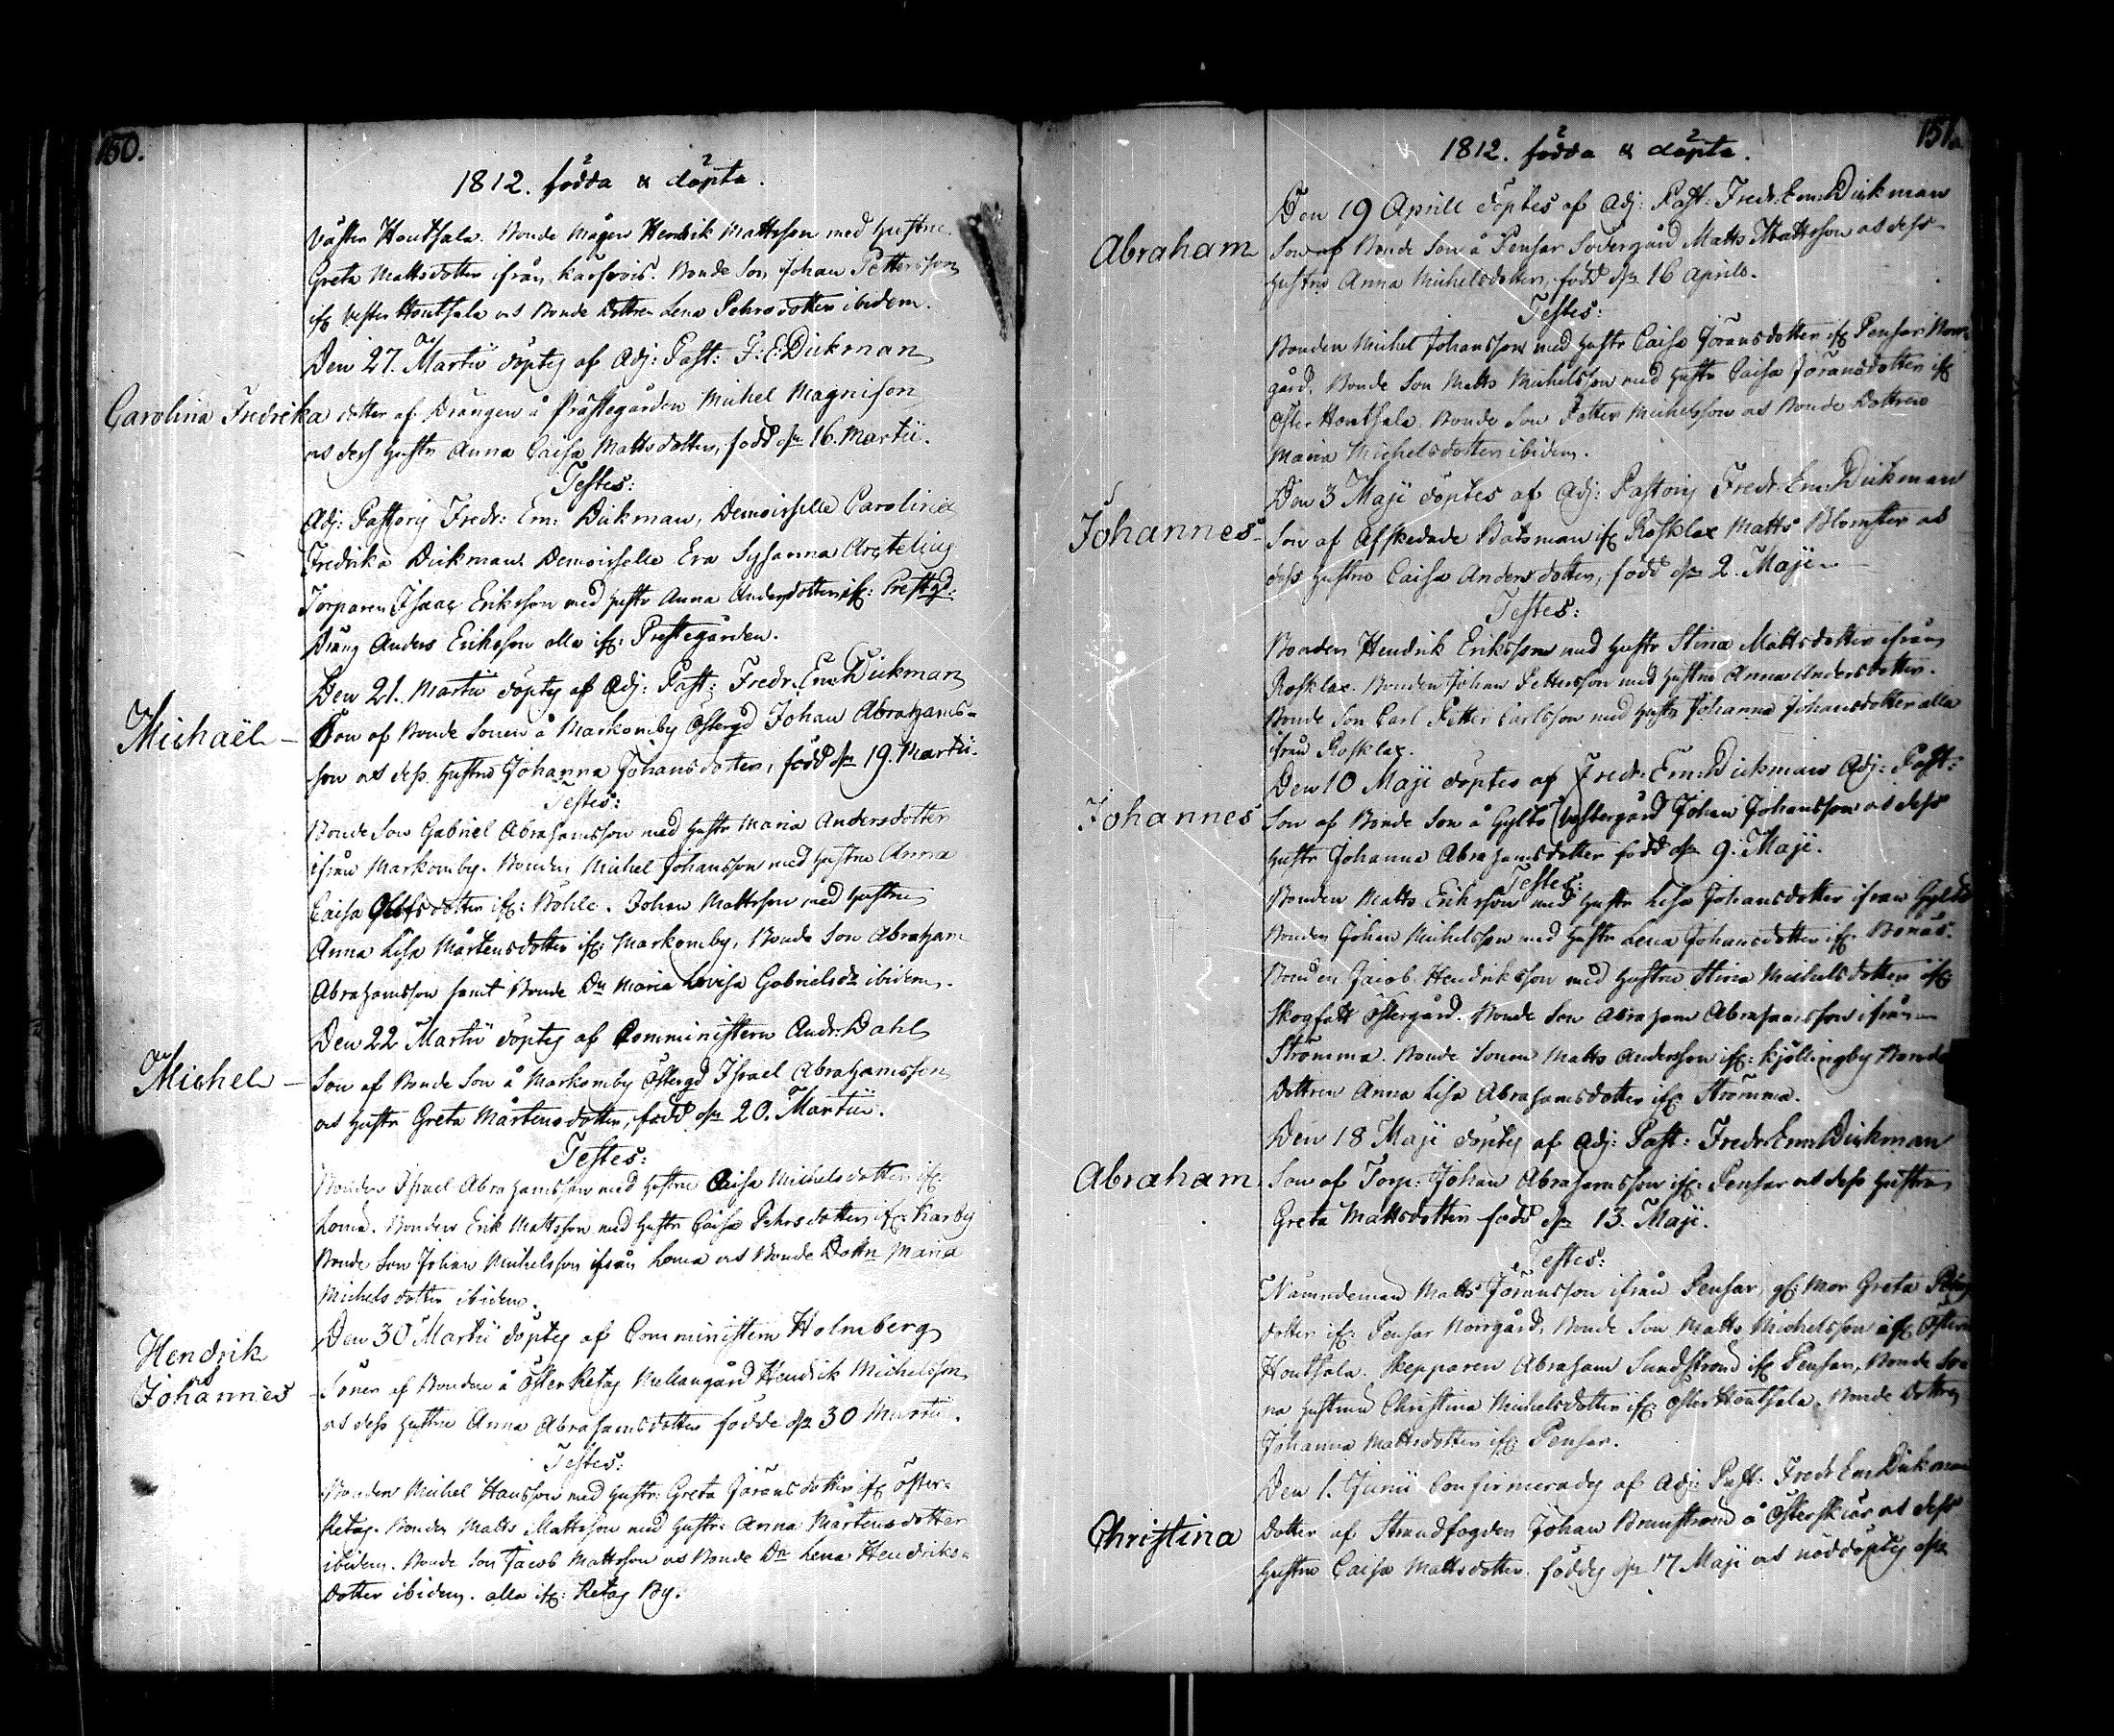 150.
1812. födda & döpta.
Väster Houtsala. Bonde mågen Hendrik Mattsson med Hustru
Greta Mattsdotter ifrån Karsvois. Bonde Son Johan Pettersson
ifr Vester Houtsala och Bonde Dottren Lena Pehrsdotter ibidem.
Den 27. Martii döptes af Adj: Past: F: E: Dickman
Carolina Fredrika dotter af Drängen å Prästegården Michel Magnison
och dess Hustr Anna Caisa Mattsdotter, född den 16. Martii.
Testes:
Adj: Pastoris Fredr: Em: Dickman, Demoiselle Carolina
Fredrika Dickman. Demoiselle Eva Sysanna
Torparen Isaac Eriksson med Hustr Anna Andersdotter ifr: Prestgd:
Dräng Anders Eriksson alla ifr: Prestegården.
Den 21. Martii döptes af Adj: Past: Fredr. Em: Dickman
Michaël Son af Bonde Sonen å Markomby Östergd Johan Abrahams-
son och dess Hustru Johanna Johansdotter, född den 19. Martii.
Testes:
Bonde Son Gabriel Abrahamsson med Hustr Maria Andersdotter
ifrån Markomby. Bonden Michel Johansson med Hustru Anna
Caisa Olofsdotter ifr: Böhle. Johan Mattsson med Hustru
Anna Lisa Mårtensdotter ifr: Markomby, Bonde Son Abraham
Abrahamsson samt Bonde Dn Maria Lovisa Gabrielsdr ibidem.
Den 22 Martii döptes af Comministern Andr: Dahl
Michel Son af Bonde Son å Markomby Östergd Israel Abrahamsson
och Hustr Greta Mårtensdotter, född den 20. Martii.
Testes:
Bonden Israel Abrahamsson med Hustru Caisa Michelsdotter ifr:
Loma. Bonden Erik Mattsson med Hustr Caisa Pehrsdotter ifr: Karby
Bonde Son Johan Michelsson ifrån Loma och Bonde Dottn Maria
Michelsdotter ibidem.
Den 30 Martii döptes af Comministern Holmberg
Hendrik
och
Johannes Söner af Bonden å Öster Retag Mellangård Hendrik Michelsson
och dess Hustru Anna Abrahamsdotter födde den 30 Martii.
Testes:
Bonden Michel Hansson med Hustr: Greta Göransdotter ifr Öster-
Retag. Bonden Matts Mattsson med Hustr: Anna Mårtensdotter
ibidem. Bonde Son Jacob Mattsson och Bonde Dn Lena Hendriks-
dotter ibidem. alla ifr: Retag By.
151.
1812. födda & döpta.
Den 19 Aprill döptes af Adj: Past: Fredr. Em: Dickman
Abraham Son af Bonde Son å Pensar Södergård Matts Mattsson och dess
Hustru Anna Michelsdotter, född den 16 Aprils.
Testes:
Bonden Michel Johansson med Hustr Caisa Jöransdotter ifr Pensar Norr-
gård. Bonde Son Matts Michelsson med Hustr Caisa Jöransdotter ifr
Öster Houtsala. Bonde Son Petter Michelsson och Bonde Dottren
Maria Michelsdotter ibidem.
Den 3 Maji döptes af Adj: Pastoris Fredr. Em: Dickman
Johannes Son af Afskedade Båtsman ifr Rosklax Matts Blomster och
dess Hustru Caisa Andersdotter, född den 2. Maji.
Testes:
Bonden Hendrik Eriksson med Hustr Stina Mattsdotter ifrån
Rosklax. Bonden Johan Pettersson med Hustru Anna Andersdotter.
Bonde Son Carl Petter Carlsson med Hustr Johanna Johansdotter alla
ifrån Rosklax.
Den 10 Maji döptes af Fredr: Em: Dickman Adj: Past:
Johannes Son af Bonde Son å Gyltö Vestergård Johan Johansson och dess
Hustr Johanna Abrahamsdotter född den 9. Maji.
Testes:
Bonden Matts Eriksson med Hustr Lisa Johansdotter ifrån Gyltö
Bonden Johan Michelsson med Hustr Lena Johansdotter ifr: Bonäs.
Bonden Jacob Hendriksson med Hustru Stina Michelsdotter ifr
Skogfalt Östergård. Bonde Son Abraham Abrahamsson ifrån
Strömma. Bonde Sonen Matts Andersson ifr: Kjöllingby Bonde
Dottren Anna Lisa Abrahamsdotter ifr: Strömma.
Den 18 Maji döptes af Adj: Past: Fredr Em: Dickman
Abraham Son af Torp: Johan Abrahamsson ifr: Pensar och dess Hustru
Greta Mattsdotter född den 13. Maji.
Testes:
Nämndeman Matts Göransson ifrån Pensar, Mor Greta
dotter ifr: Pensar Norrgård, Bonde Son Matts Michelsson ifr Öster
Houtsala. Skepparen Abraham Sundström ifr Pensar, Bonde So-
na Hustrun Christina Michelsdotter ifr: Öster Houtsala. Bonde Dottren
Johanna Mattsdotter ifr Pensar.
Den 1. Junii Confirmerades af Adj: Past: Fredr Em Dickman
Christina Dotter af Strandfogden Johan Brunström å Österskiär och dess
Hustru Caisa Mattsdotter. föddes den 17 Maji och nöddöptes